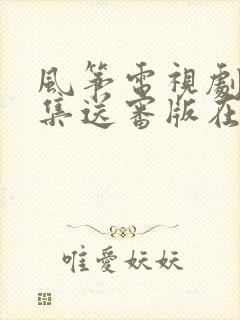 風箏電視劇
集送審版在
唯愛妖妖